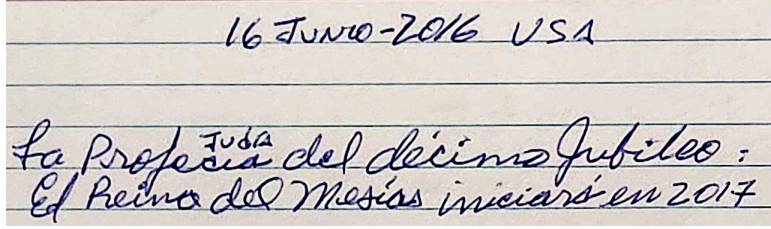 16 JUNIO-2016 USA
La Profecía JUDÍA del décimo Jubileo:
El Reino del Mesías iniciará en 2017